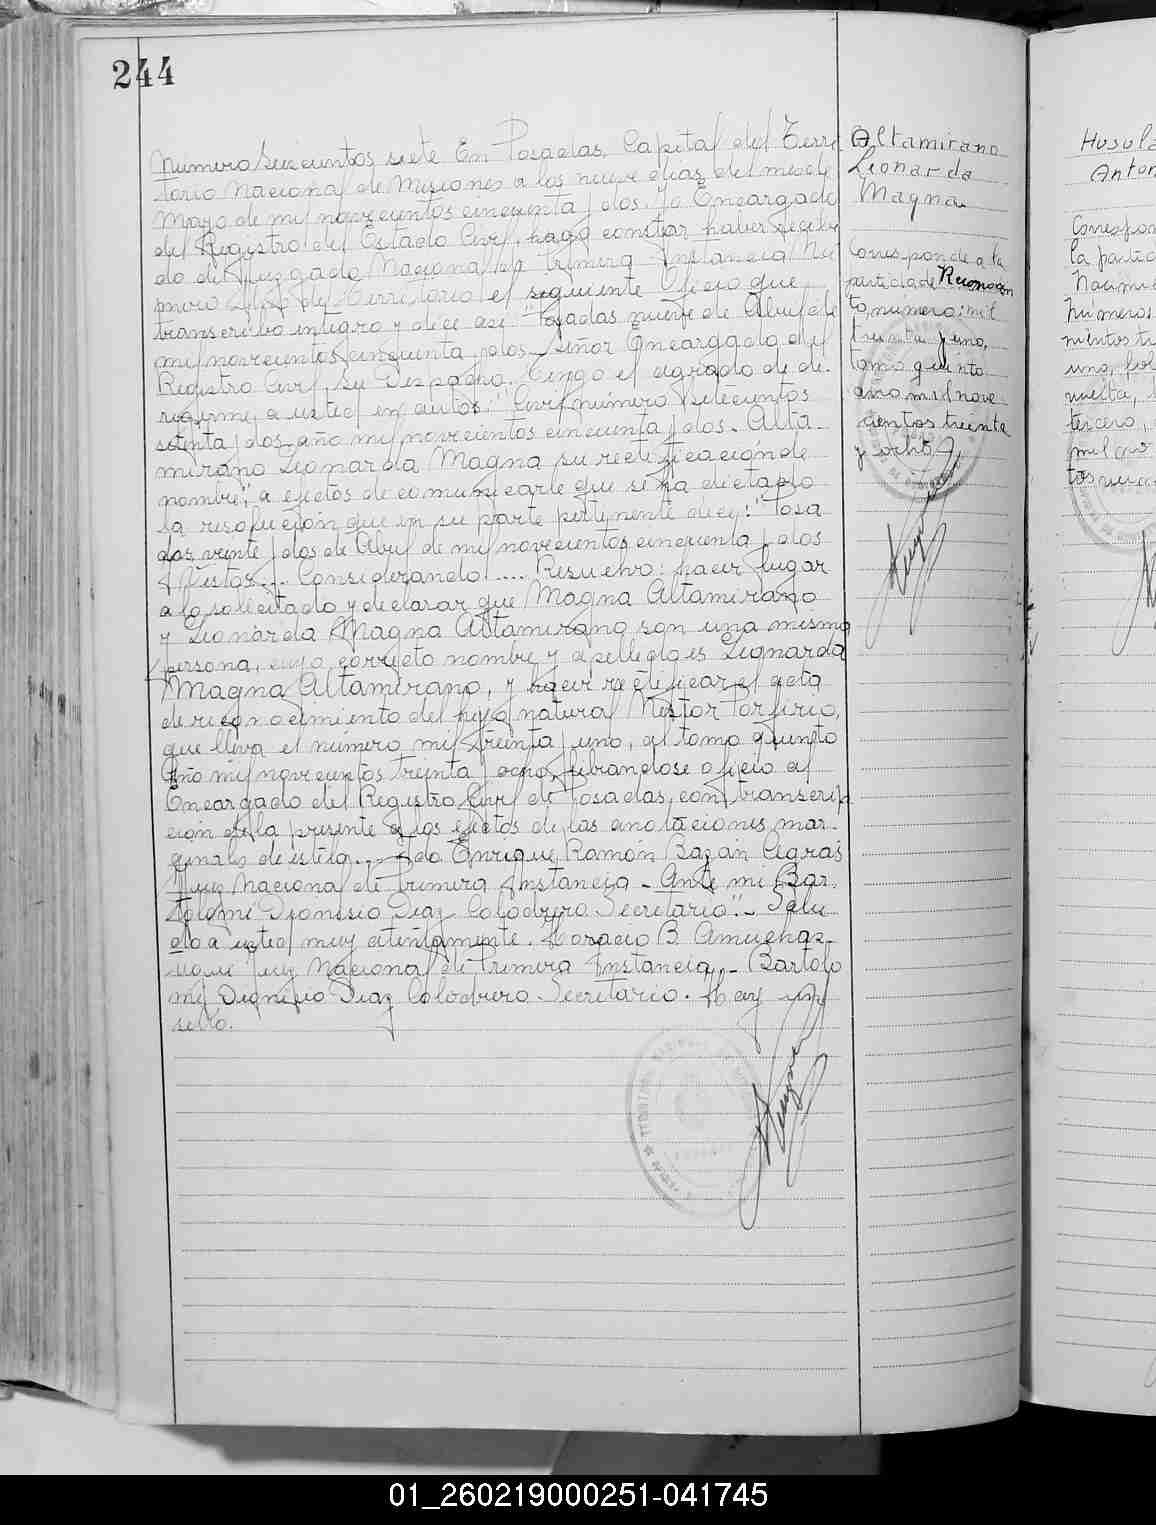 244
Número Seiscientos siete En Posadas, Capital del Terri
torio Nacional de Misiones a los nueve días del mes de
Mayo de mil novecientos cincuenta y dos. Yo Encargado
del Registro del Estado Civil, hago constar haber recibi
do del Juzgado Nacional de Primera Instancia Nú
mero del Territorio el siguiente Oficio que
transcribo íntegro y dice así: "Posadas nueve de Abril de
mil novecientos cincuenta y dos. Señor Encargado del
Registro Civil, Su Despacho. Tengo el agrado de di-
rigirme a usted en autos: "Civil número setecientos
setenta y dos-año mil novecientos cincuenta y dos. Alta-
mirano Leonarda Magna su rectificación de
nombre," a efectos de comunicarle que se ha dictado
la resolución que en su parte pertinente dice: "Posa
das, veinte y dos de Abril de mil novecientos cincuenta y dos
Vistos... Considerando .... Resuelvo: hacer lugar
a lo solicitado y declarar que Magna Altamirano
y Leonarda Magna Altamirano son una misma
persona, cuyo correcto nombre y apellido es Leonarda
Magna Altamirano, y hacer rectificar el acta
de reconocimiento del hijo natural Néstor Porfirio,
que lleva el número mil treinta y uno, al tomo quinto
año mil novecientos treinta y ocho, librándose oficio al
Encargado del Registro Civil de Posadas, con transcrip
ción de la presente a los efectos de las anotaciones mar-
ginales de estilo... Fdo Enrique Ramón Bazán Agras
Juez Nacional de Primera Instancia - Ante mi Bar.
tolomé Dionisio Diaz Colodrero. Secretario". - Salu
do a usted muy atentamente. Horacio B. Amuchas-
Juez Nacional de Primera Instancia. - Bartolo
mé Dionisio Diaz Colodrero. Secretario. Hay un
sello.
Altamirano
Leonarda
Magna
Corresponde a la
partida de Reconocimien
to, número: mil
treinta y uno,
tomo quinto
año mil nove
cientos treinta
y ocho.
Husula
Anton
Correspon
la partid
Nacimie
números
nientos tr
uno, fol
vuelta,
tercero,
mil nov
01_260219000251-041745